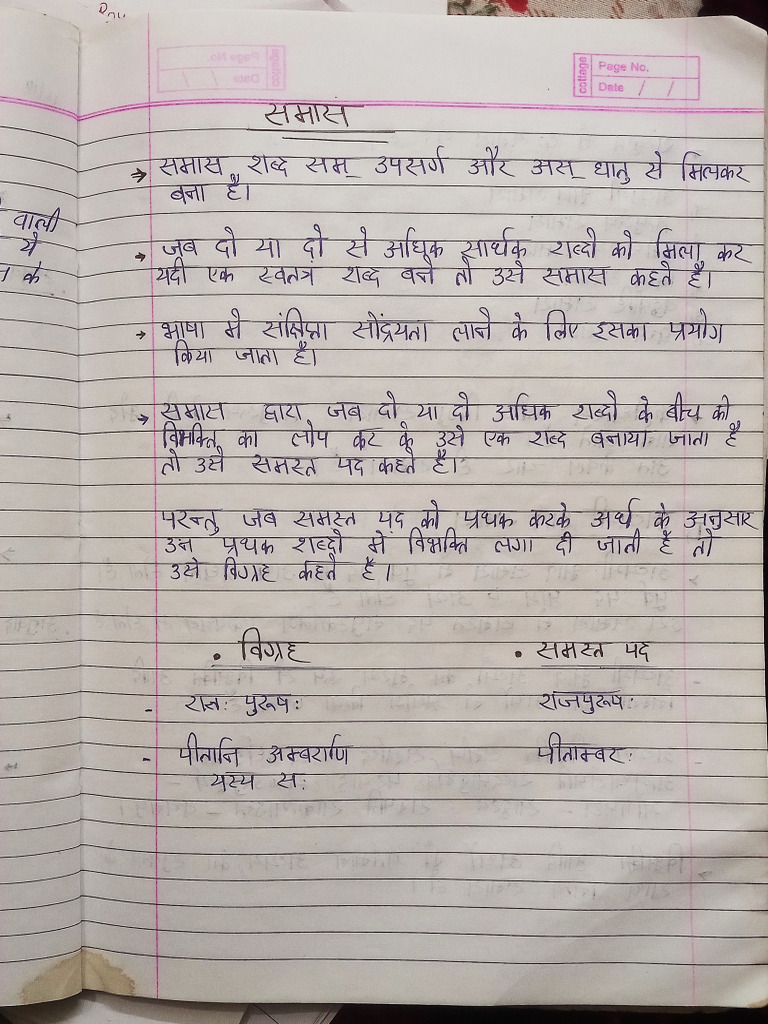 समास
cottage
Page No.
Date / /
→ समास शब्द सम् उपसर्ग और अस् धातु से मिलकर
बना है।
वाली
ये
के
→ जब दो या दो से अधिक सार्थक शब्दो को मिला कर
यदी एक स्वतत्रं शब्द बने तो उसे समास कहते है।
→ भाषा मे संक्षिप्ता सोंद्रयता लाने के लिए इसका प्रयोग
किया जाता है।
→ समास द्वारा जब दो या दो अधिक शब्दो के बीच की
विभक्ति का लोप कर के उसे एक शब्द बनाया जाता है
तो उसे समस्त पद कहते है।
परन्तु जब समस्त पद को प्रथक करके अर्थ के अनुसार
उन प्रथक शब्दो मे विभक्ति लगा दी जाती है तो
उसे विग्रह कहते है।
• विग्रह • समस्त पद
- राज्ञः पुरूषः राजपुरूषः
- पीतानि अम्बराणि पीताम्बरः
यस्य सः